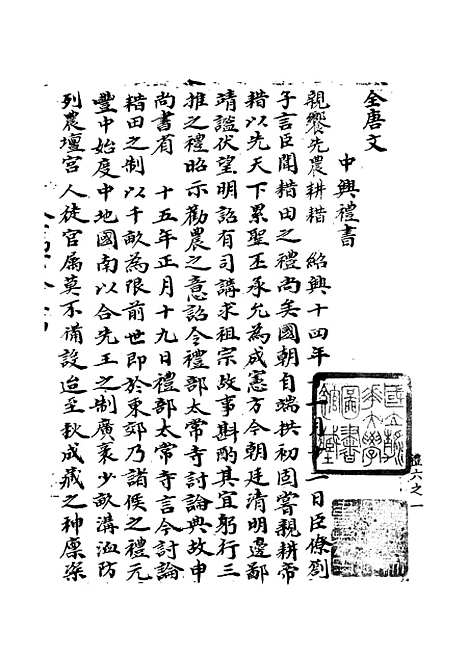 全唐文
中興禮書
親饗先農耕耤 紹興十四年 一月 二日臣僚劄
子言臣聞耤田之禮尚矣國朝自端拱初固嘗親耕帝
耤以先天下累聖丕承允為成憲方今朝廷清明邊鄙
靖謐伏望明詔有司講求祖宗故事斟酌其宜躬行三
推之禮昭示勸農之意詔令禮部太常寺討論典故申
尚書省 十五年正月十九日禮部太常寺言今討論
耤田之制以千畝為限前世即於東郊乃諸侯之禮元
豐中始度中地國南以合先王之制廣袤少畝溝洫防
列農壇宮人徒官屬莫不備設迨至秋成藏之神廩粢
禮六之一
國立北平圖書館